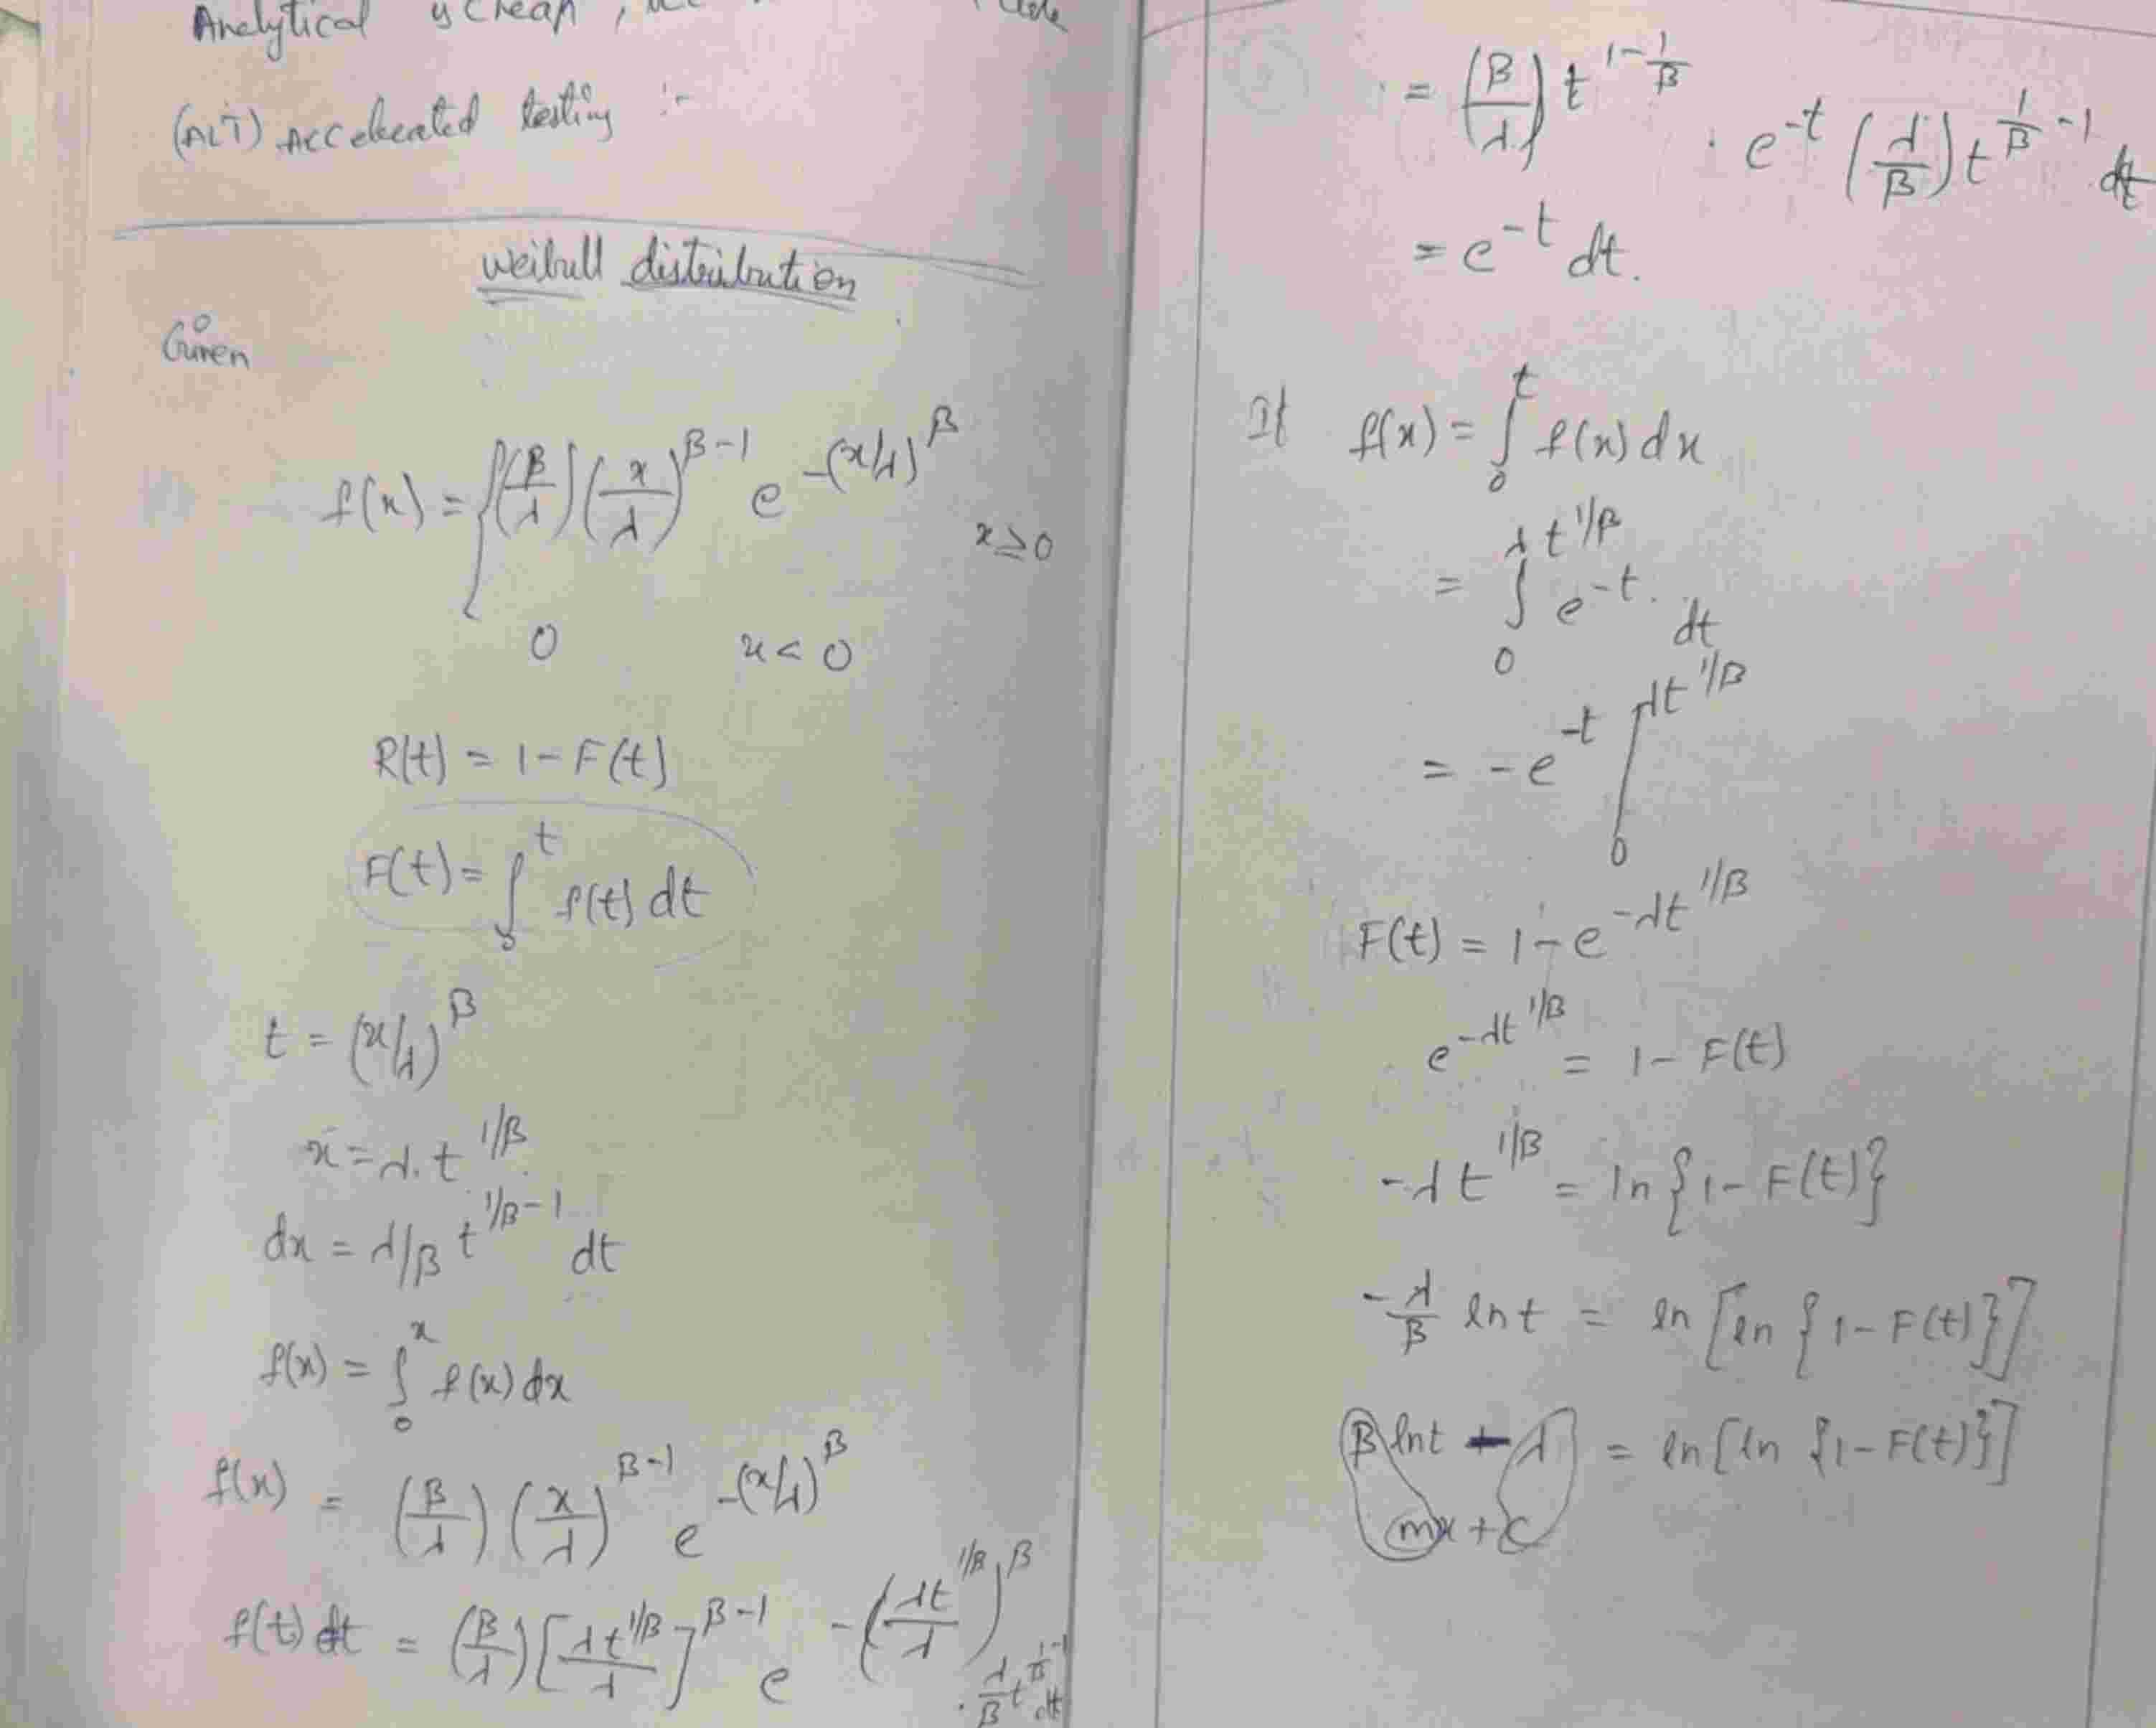 Analytical
(ALT) Accelerated testing :-
Weibull distribution
Given
f(x) = { (β/λ) (x/λ)^(β-1) e^(-(x/λ)^β) x ≥ 0
0 x < 0
R(t) = 1 - F(t)
F(t) = ∫_0^t f(t) dt
t = (x/λ)^β
x = λ. t^(1/β)
dx = λ/β t^(1/β-1) dt
f(x) = ∫_0^x f(x) dx
f(x) = (β/λ) (x/λ)^(β-1) e^(-(x/λ)^β)
f(t) dt = (β/λ) [λt^(1/β)/λ]^(β-1) e^(-(λt^(1/β)/λ)^β) . λ/β t^(1/β-1) dt
= (β/λ) t^(1-1/β) . e^(-t) (λ/β) t^(1/β-1) dt
= e^(-t) dt.
If f(x) = ∫_0^t f(x) dx
= ∫_0^(λt^(1/β)) e^(-t). dt
= -e^(-t) ∫_0^(λt^(1/β))
F(t) = 1 - e^(-λt^(1/β))
e^(-λt^(1/β)) = 1 - F(t)
-λt^(1/β) = ln {1 - F(t)}
-λ/β ln t = ln [ln {1 - F(t)}]
β lnt + λ = ln [ln {1 - F(t)}]
mx + c